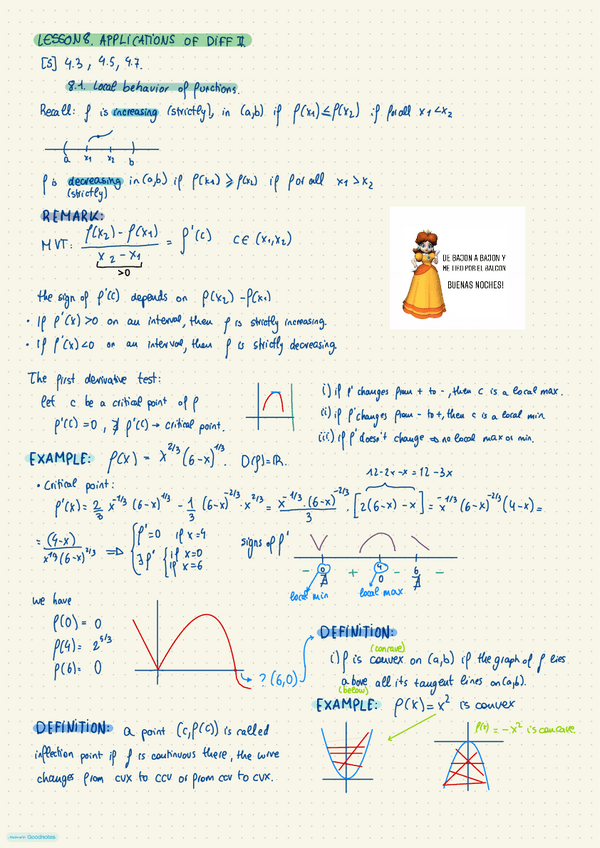 LESSON 8. APPLICATIONS OF DIFF II
[S] 4.3, 4.5, 4.7.
8.1. Local behavior of functions.
Recall: f is increasing (strictly), in (a,b) if f(x₁) ≤ f(x₂) if for all x₁ < x₂
a x₁ x₂ b
f is decreasing in (a,b) if f(x₁) ⩾ f(x₂) if for all x₁ > x₂
(strictly)
REMARK:
MVT: f(x₂) - f(x₁) / x₂ - x₁ = f'(c) c ∈ (x₁, x₂)
>0
DE BAJON A BAJON Y
ME TIRO POR EL BALCON
BUENAS NOCHES!
the sign of f'(c) depends on f(x₂) - f(x₁)
· If f'(x) > 0 on an interval, then f is strictly increasing.
· If f'(x) < 0 on an interval, then f is strictly decreasing.
The first derivative test:
let c be a critical point of f
f'(c) = 0, ∄ f'(c) → critical point.
i) if f' changes from + to -, then c is a local max.
ii) if f' changes from - to +, then c is a local min
iii) if f' doesn't change ⇒ no local max or min.
EXAMPLE: f(x) = x^2/3 (6-x)^1/3. D(f) = ℝ.
12-2x-x = 12-3x
· Critical point:
f'(x) = 2/3 x^-1/3 (6-x)^1/3 - 1/3 (6-x)^-2/3 · x^2/3 = x^-1/3 · (6-x)^-2/3 / 3 · [2(6-x) - x] = x^-1/3 (6-x)^-2/3 (4-x) =
= (4-x) / x^1/3 (6-x)^2/3 ⇒ { f' = 0 if x = 4
∄ f' { if x = 0
if x = 6
signs of f'
- 0 + 4 - 6 -
∄ 0 ∄
local min local max
we have
f(0) = 0
f(4) = 2^5/3
f(6) = 0
? (6,0)
DEFINITION:
(concave)
i) f is convex on (a,b) if the graph of f lies
above all its tangent lines on (a,b).
(below)
EXAMPLE: f(x) = x² is convex
f(x) = -x² is concave
DEFINITION: a point (c, f(c)) is called
inflection point if f is continuous there, the curve
changes from cvx to ccv or from ccv to cvx.
Made with Goodnotes